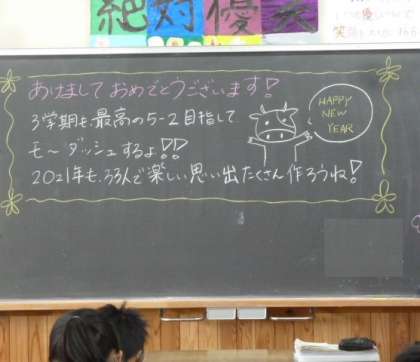 絶対優笑
あけまして おめでとうございます!
3学期も最高の5-2目指して
モ〜ダッシュするよ!!
2021年も、33人で楽しい思い出たくさん作ろうね!
HAPPY
NEW
YEAR